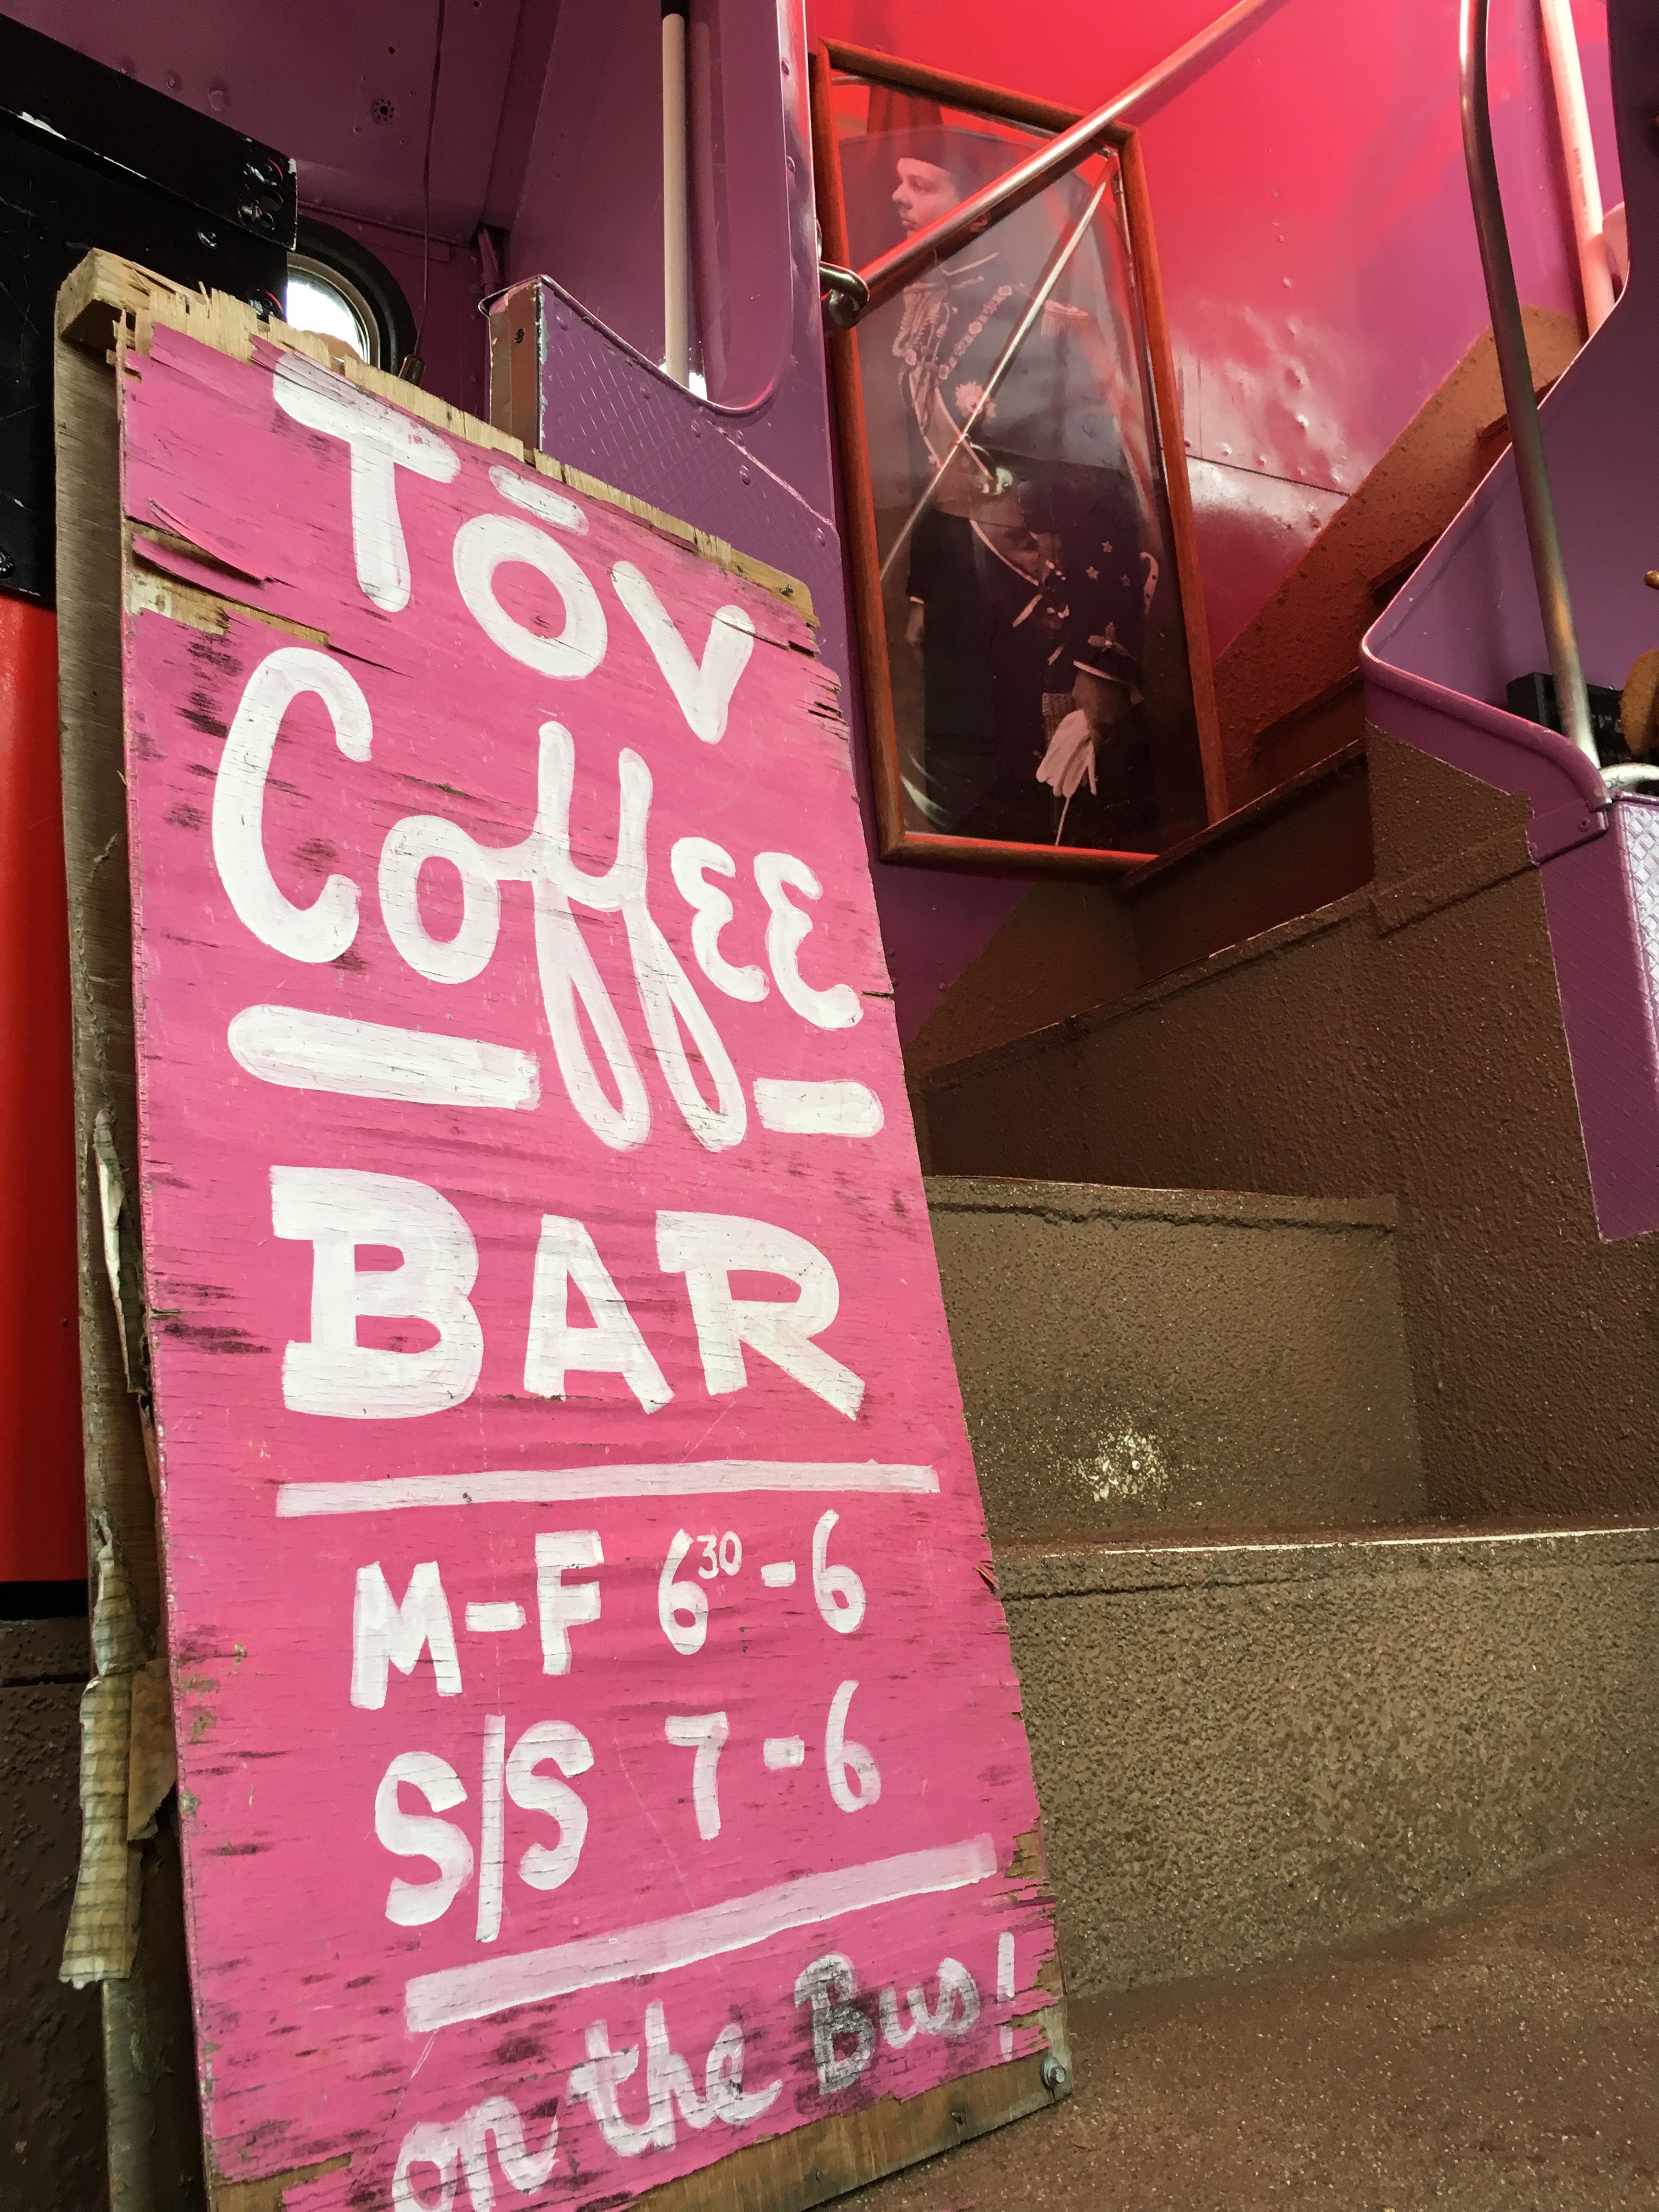 Tōv
Coffee
BAR
M-F 6³⁰-6
S/S 7-6
on the Bus!